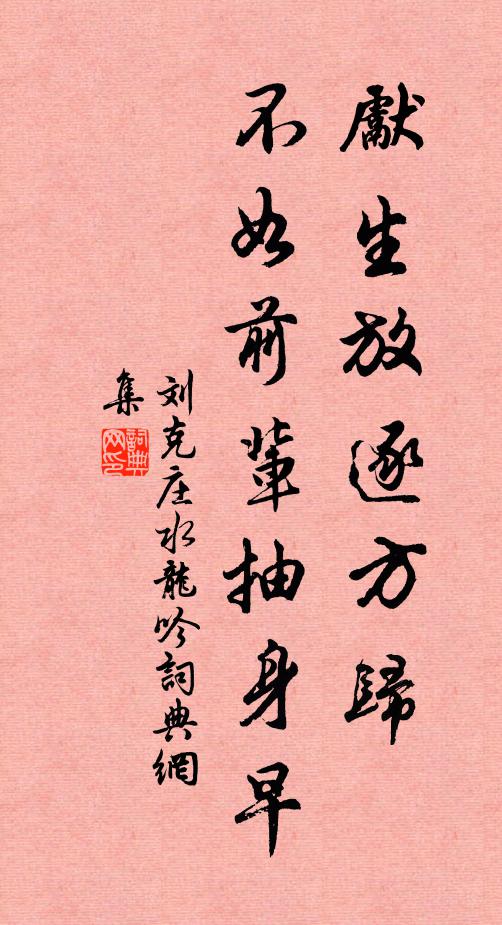 獻生放逐方歸
不如前輩抽身早
刘克庄水龍吟詞典網
集
詞典
网印